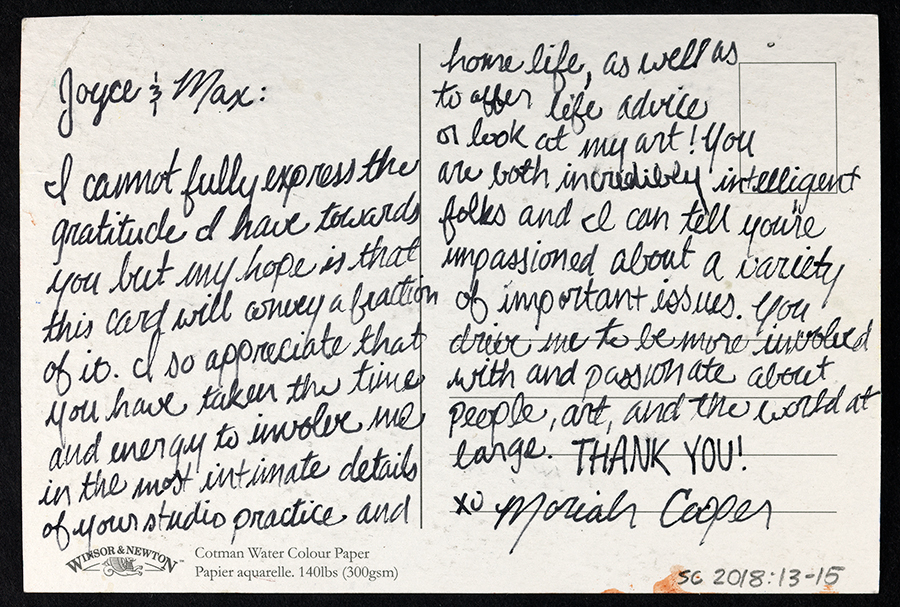 Joyce & Max:
I cannot fully express the
gratitude I have towards
you but my hope is that
this card will convey a fraction
of it. I so appreciate that
you have taken the time
and energy to involve me
in the most intimate details
of your studio practice and
WINSOR & NEWTON™
Cotman Water Colour Paper
Papier aquarelle. 140lbs (300gsm)
home life, as well as
to offer life advice
or look at my art! You
are both incredibly intelligent
folks and I can tell you're
impassioned about a variety
of important issues. You
drive me to be more involved
with and passionate about
people, art, and the world at
large. THANK YOU!
xo Moriah Cooper
SG 2018:13-15